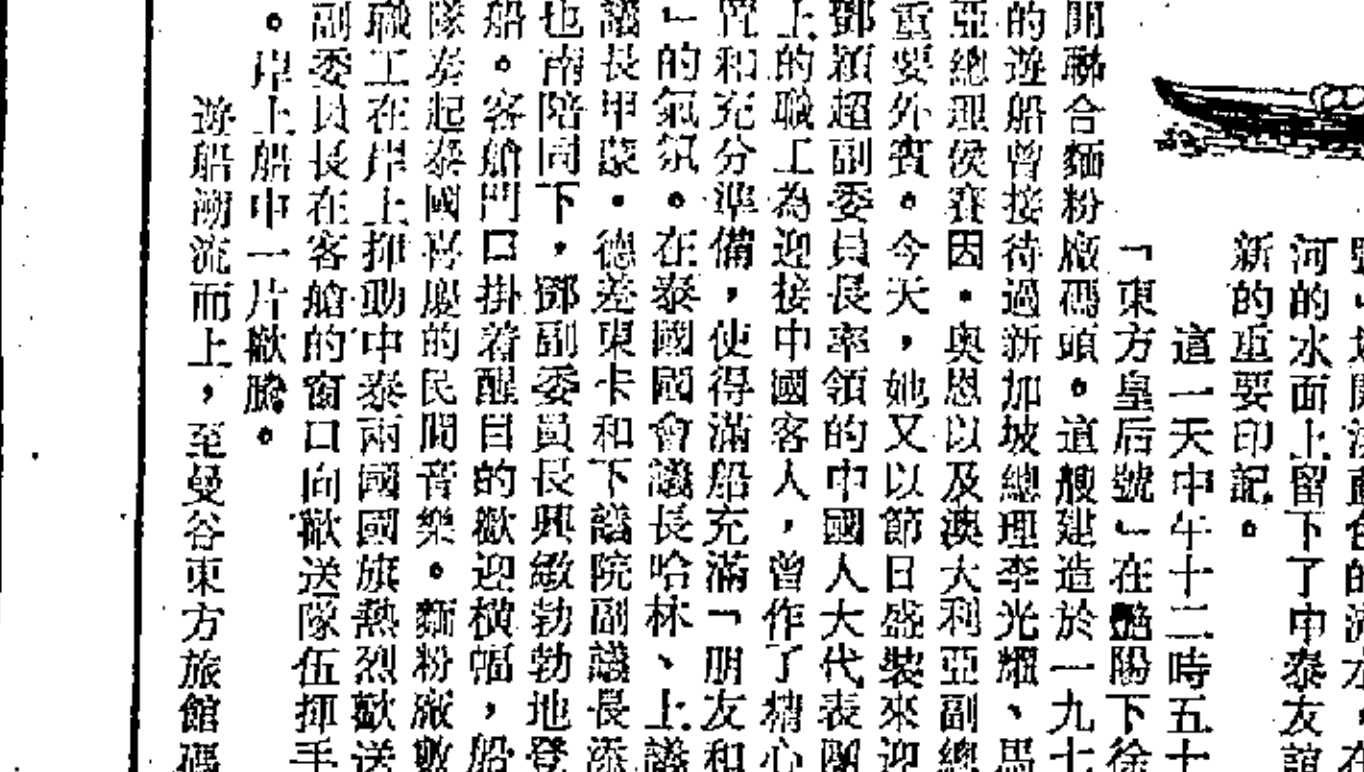 河的水面上留下了中泰友誼
新的重要印記。
這一天中午十二時五十
「東方皇后號」在艷陽下徐
開聯合麵粉廠碼頭。這艘建造於一九七
的遊船曾接待過新加坡總理李光耀、馬
亞總理侯賽因・奧恩以及澳大利亞副總
重要外賓。今天,她又以節日盛裝來迎
鄧穎超副委員長率領的中國人大代表團
上的職工為迎接中國客人,曾作了精心
和充分準備,使得滿船充滿「朋友和
」的氣氛。在泰國國會議長哈林、上議
議長甲蒙・德差東卡和下議院副議長添
也南陪同下,鄧副委員長興緻勃勃地登
船。客艙門口掛着醒目的歡迎橫幅,船
隊奏起泰國喜慶的民間音樂。麵粉廠數
職工在岸上揮動中泰兩國國旗熱烈歡送
副委員長在客艙的窗口向歡送隊伍揮手
。岸上船中一片歡騰。
遊船溯流而上,至曼谷東方旅館碼